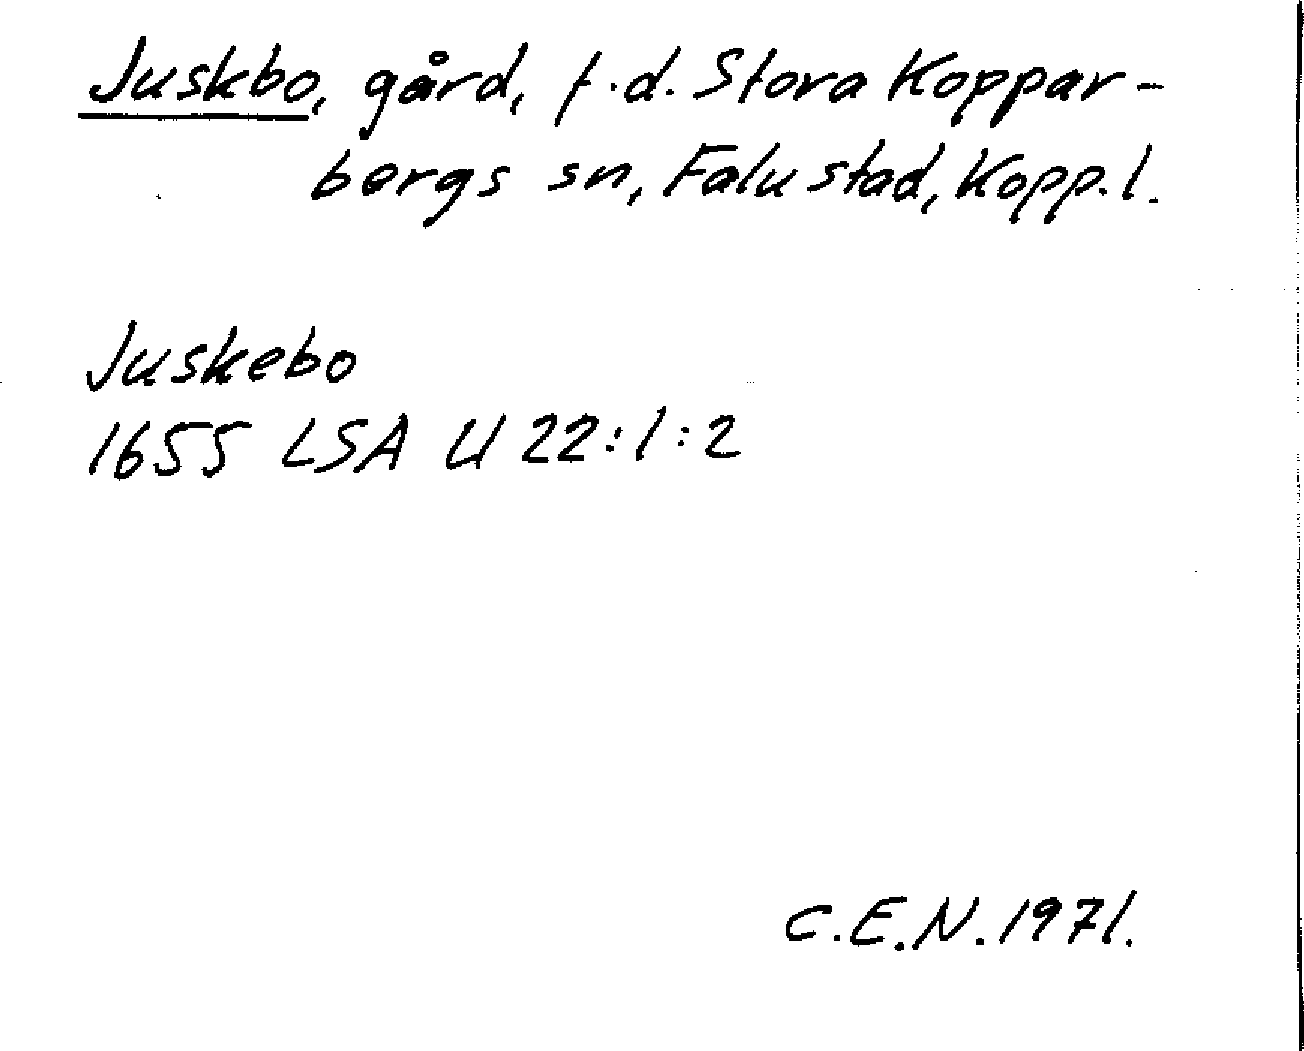 Juskbo, gård, f.d. Stora Koppar-
bergs sn, Falu stad, Kopp. l.
Juskebo
1655 LSA U 22:1:2
C.E.N. 1971.